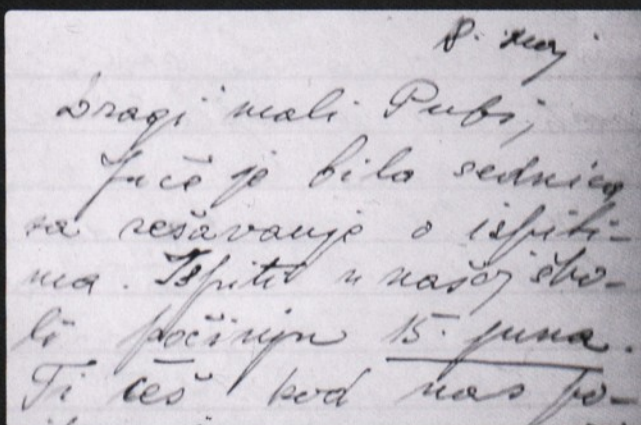 8. maj
Dragi mali Pubi,
Juče je bila sednica
za rešavanje o ispiti-
ma. Ispiti u našoj ško-
li počinju 15. juna.
Ti ćeš kod nas po-